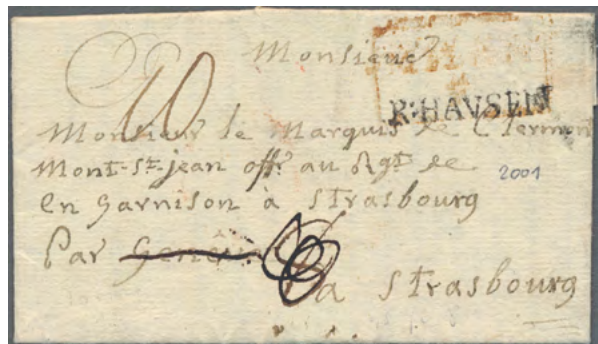 Monsieur
R:HAVSEN
Monsieur le Marquis de Clermon
Mont-St-jean offr au Rgt de
2001
en garnison à strasbourg
Par Genêve
a strasbourg